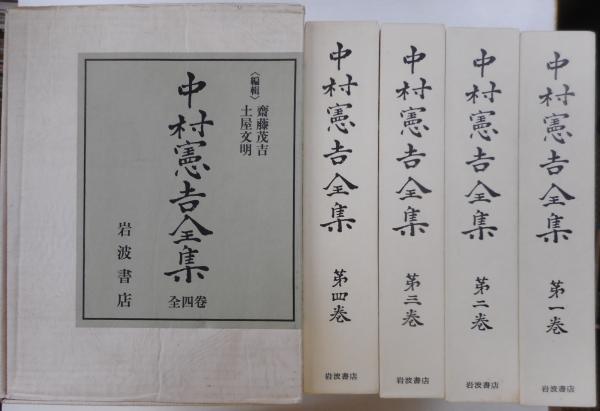 〈編輯〉
齋藤茂吉
土屋文明
中村憲吉全集
全四巻
岩波書店
中村憲吉全集
第四巻
岩波書店
中村憲吉全集
第三巻
岩波書店
中村憲吉全集
第二巻
岩波書店
中村憲吉全集
第一巻
岩波書店